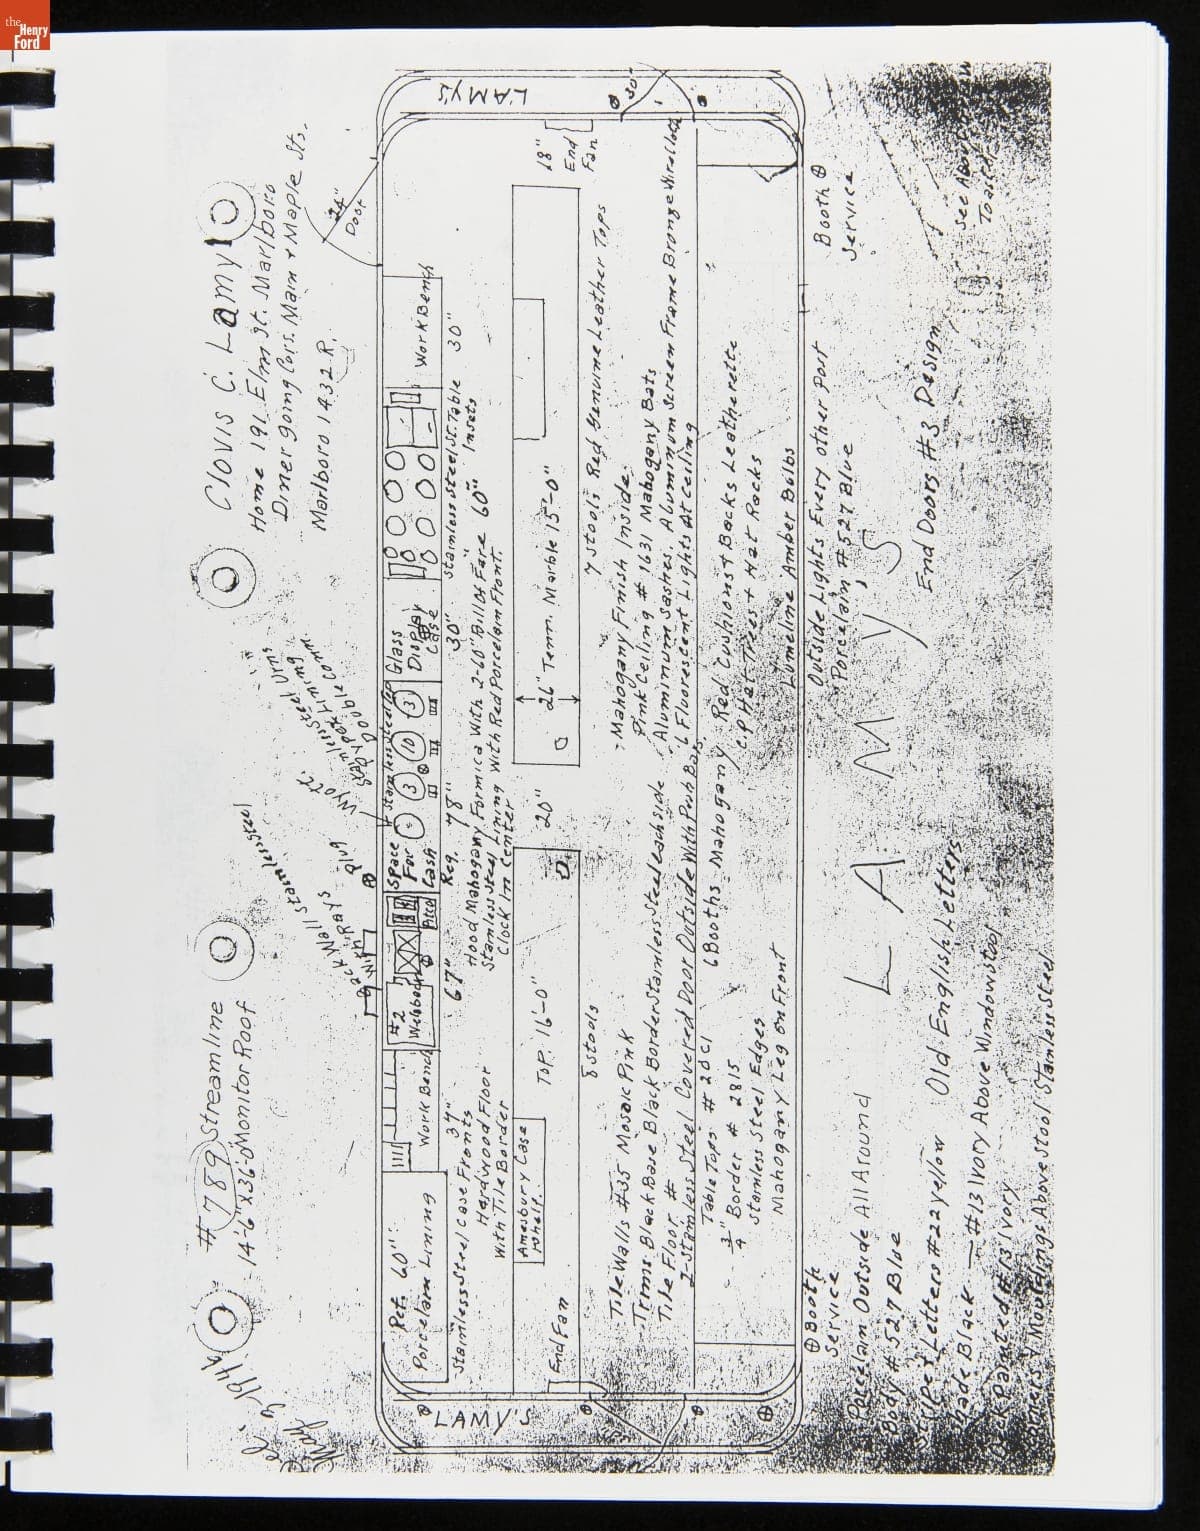 the
Henry
Ford
Clovis C. Lamy
Home 191 Elm St. Marlboro
Diner going Cors. Main + Maple Sts.
Marlboro 1432 R.
#789 Streamline
14'-6" x 36'-0" Monitor Roof
Del.
May 9 1946
Back Wall Stainless Steel
With Rays
Plug
Wyott.
Stainless Steel Urns
LAMY'S
24"
Door
30"
18"
End
Fan
Ref. 60"
Porcelain Lining
Work Bench
#2
Space
For
Cash
Reg.
3
10
3
Glass
Display
Case
Work Bench
67"
78"
30"
Stainless Steel St. Table
30"
60" Insets
Stainless Steel Case Fronts
Hardwood Floor
With Tile Border
Hood Mahogany Formica With 2-60" Bill Of Fare
Stainless Steel Lining With Red Porcelain Front.
Clock In Center
Amesbury Case
End Fan
Top 16'-0"
20"
26" Tenn. Marble 15'-0"
8 stools
7 stools Red Genuine Leather Tops
Tile Walls #35 Mosaic Pink
Trims Black Base Black Border Stainless Steel each side
Tile Floor #
2-Stainless Steel Covered Door Outside With Push Bars
Mahogany Finish Inside
Pink Ceiling #1631 Mahogany Bats
Aluminum Sashes, Aluminum Screen Frame Bronze Wire Cloth
6 Fluorescent Lights At Ceiling
Table Tops #20C1
3/4" Border #2815
Stainless Steel Edges
Mahogany Leg on Front
6 Booths - Mahogany Red Cushions + Backs Leatherette
Hat Trees + Hat Racks
Lumeline Amber Bulbs
LAMY'S
Booth
Service
Booth
Service
Outside Lights Every other Post
Porcelain #527 Blue
LAMY'S
End Doors #3 Design
Porcelain Outside All Around
Body #527 Blue
Stripe & Letters #22 yellow
Old English Letters
Shade Black
#13 Ivory Above Windowstool
Deck Painted #13 Ivory
Corners & Mouldings Above Stool Stainless Steel